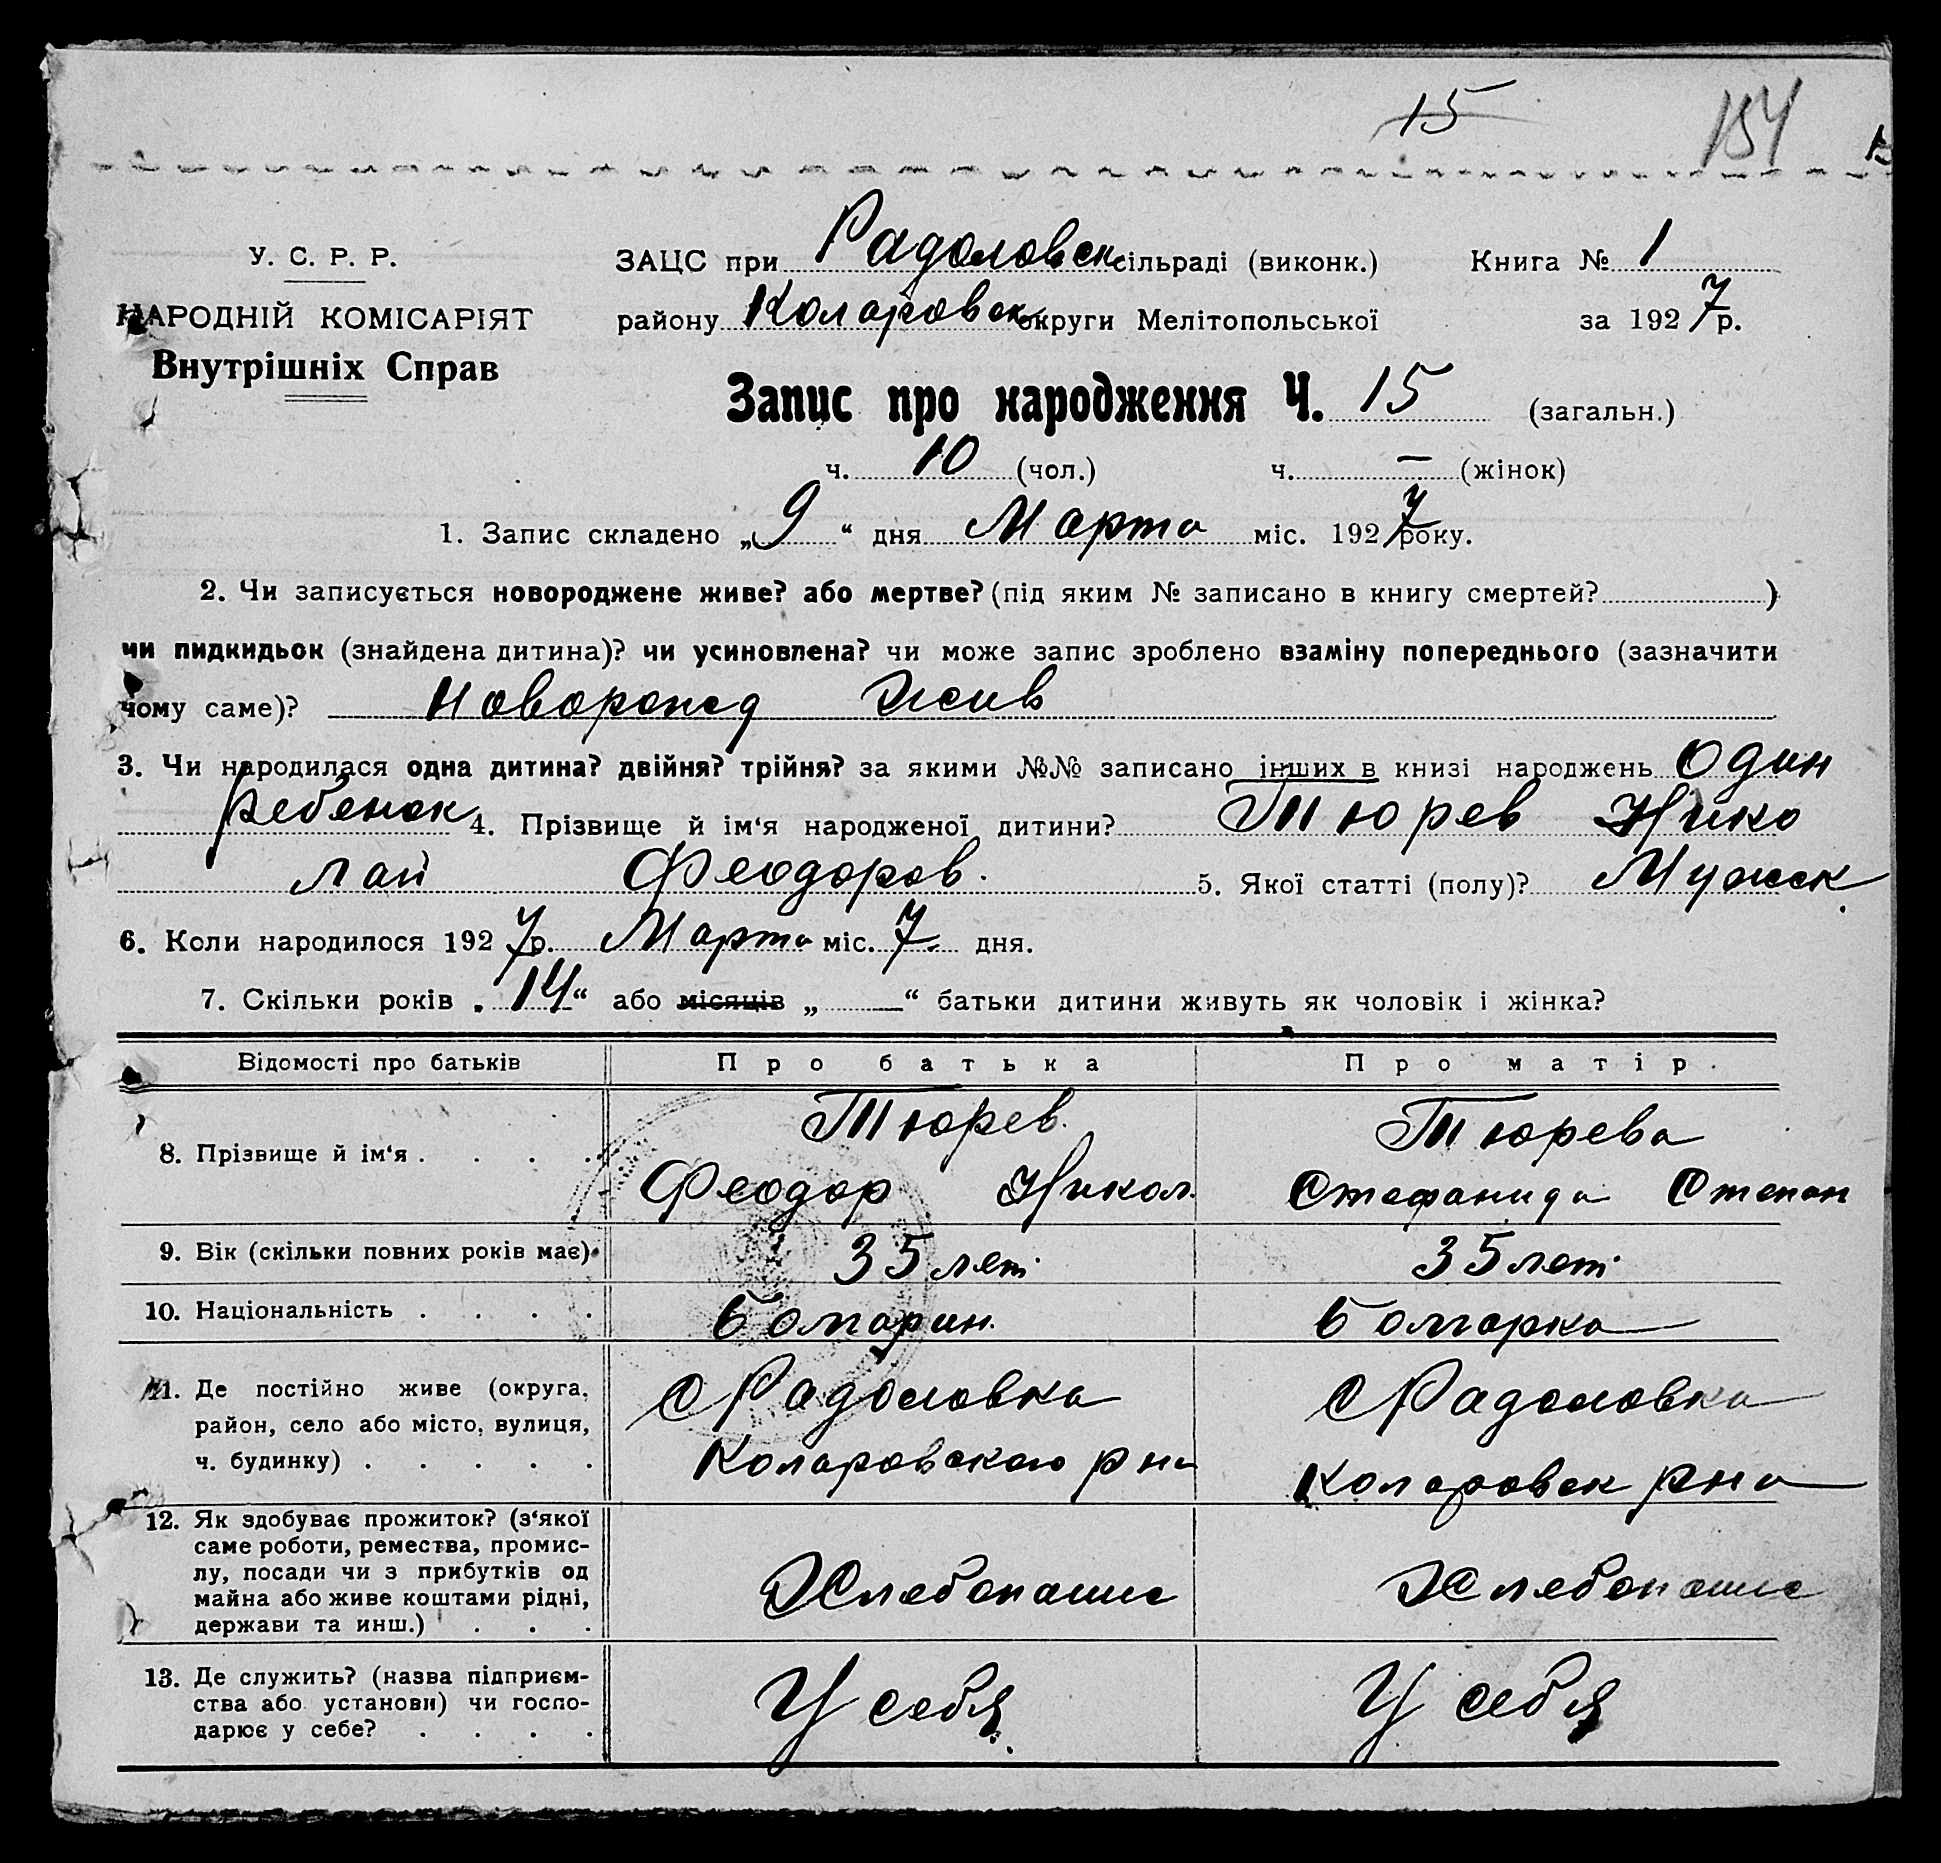 15 154
У. С. Р. Р. ЗАЦС при Радоловск сільраді (виконк.) Книга № 1
НАРОДНІЙ КОМІСАРІЯТ району Коларовск округи Мелітопольської за 1927 р.
Внутрішніх Справ
Запис про народження Ч. 15 (загальн.)
ч. 10 (чол.) ч. — (жінок)
1. Запис складено „9“ дня Марта міс. 1927 року.
2. Чи записується новороджене живе? або мертве? (під яким № записано в книгу смертей? )
чи пидкидьок (знайдена дитина)? чи усиновлена? чи може запис зроблено взаміну попереднього (зазначити
чому саме)? Еоворожд Жив
3. Чи народилася одна дитина? двійня? трійня? за якими №№ записано інших в книзі народжень Один
ребенок 4. Прізвище й ім‘я народженої дитини? Тюрев Нико
лай Феодоров. 5. Якої статті (полу)? Мужск
6. Коли народилося 1927 р. Марта міс. 7 дня.
7. Скільки років „14“ або місяців „ — “ батьки дитини живуть як чоловік і жінка?
Відомості про батьків Про батька Про матір.
8. Прізвище й ім‘я . . . . Тюрев Феодор Никол. Тюрева Стефанида Степан
9. Вік (скільки повних років має) 35 лет. 35 лет.
10. Національність . . . . Болгарин. Болгарка
11. Де постійно живе (округа, С Радоловка С Радоловка
район, село або місто, вулиця,
ч. будинку) . . . . . Коларовского р на Коларовск рна
12. Як здобуває прожиток? (з‘якої
саме роботи, ремества, промис-
лу, посади чи з прибутків од
майна або живе коштами рідні, Хлебопашс Хлебопашс
держави та инш.) . . .
13. Де служить? (назва підприєм-
ства або установи) чи госпо- У себя. У себя
дарює у себе? . . . .